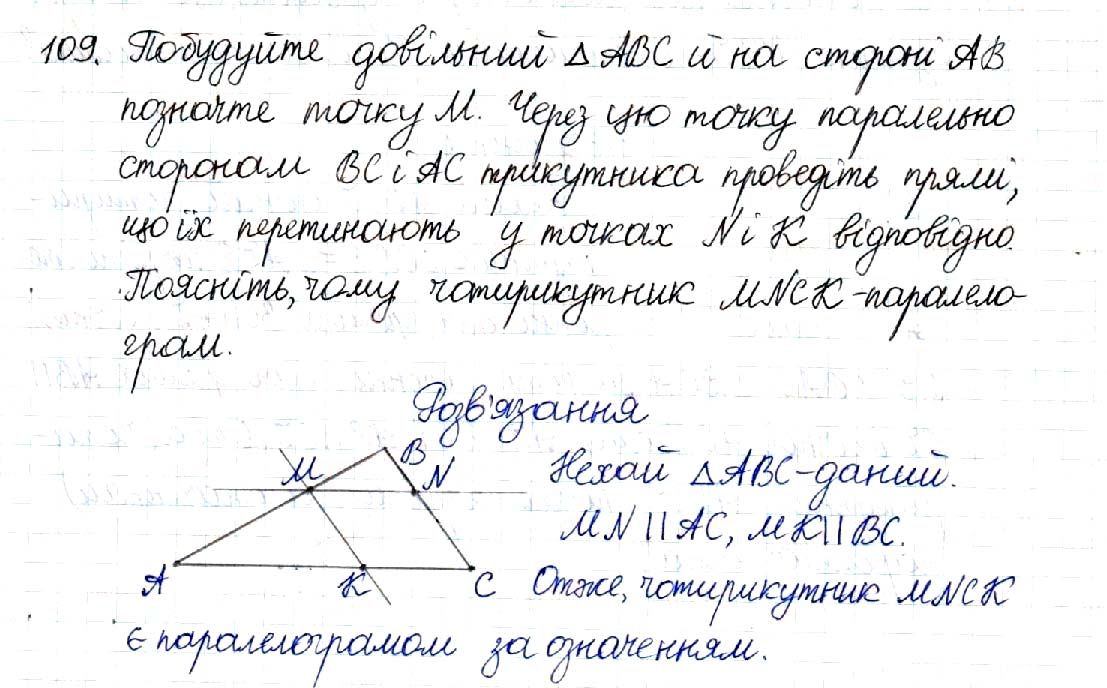 109. Побудуйте довільний △ABC й на стороні AB
позначте точку M. Через цю точку паралельно
сторонам BC і AC трикутника проведіть прямі,
що їх перетинають у точках N і K відповідно.
Поясніть, чому чотирикутник MNCK-паралело-
грам.
Розв'язання
B
M
N
Нехай △ABC-даний.
MN||AC, MK||BC.
A
K
C
Отже, чотирикутник MNCK
є паралелограмом за означенням.